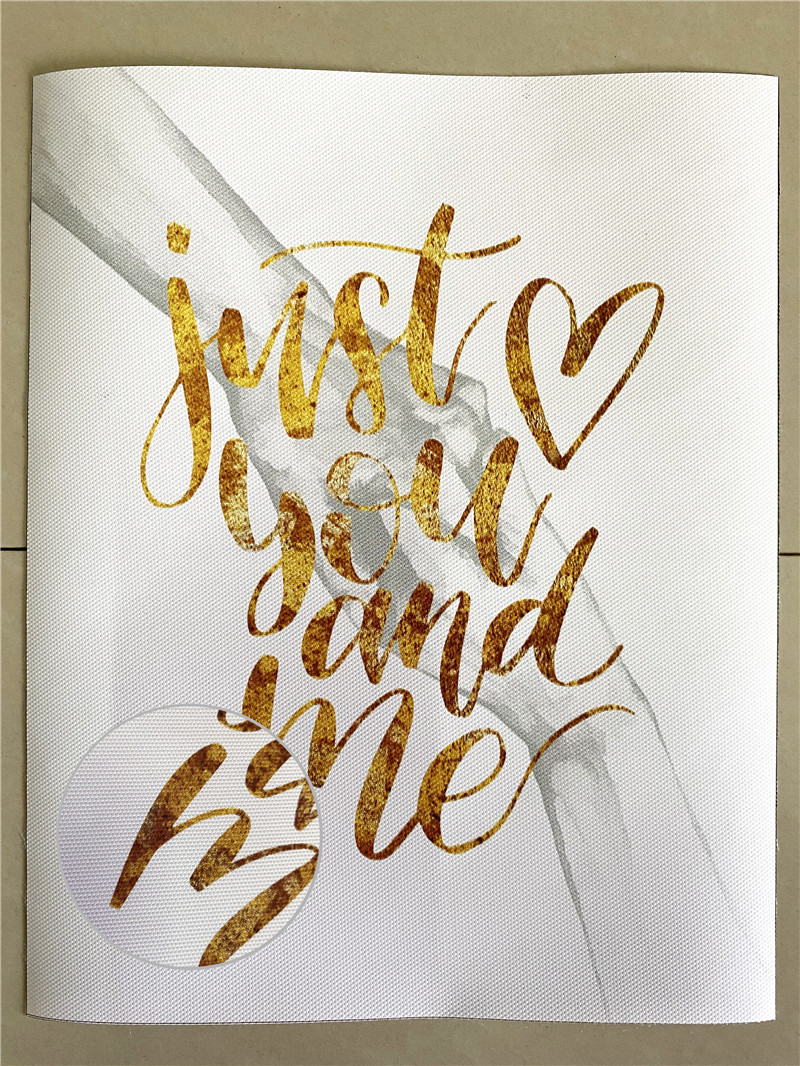 just
you
and
me